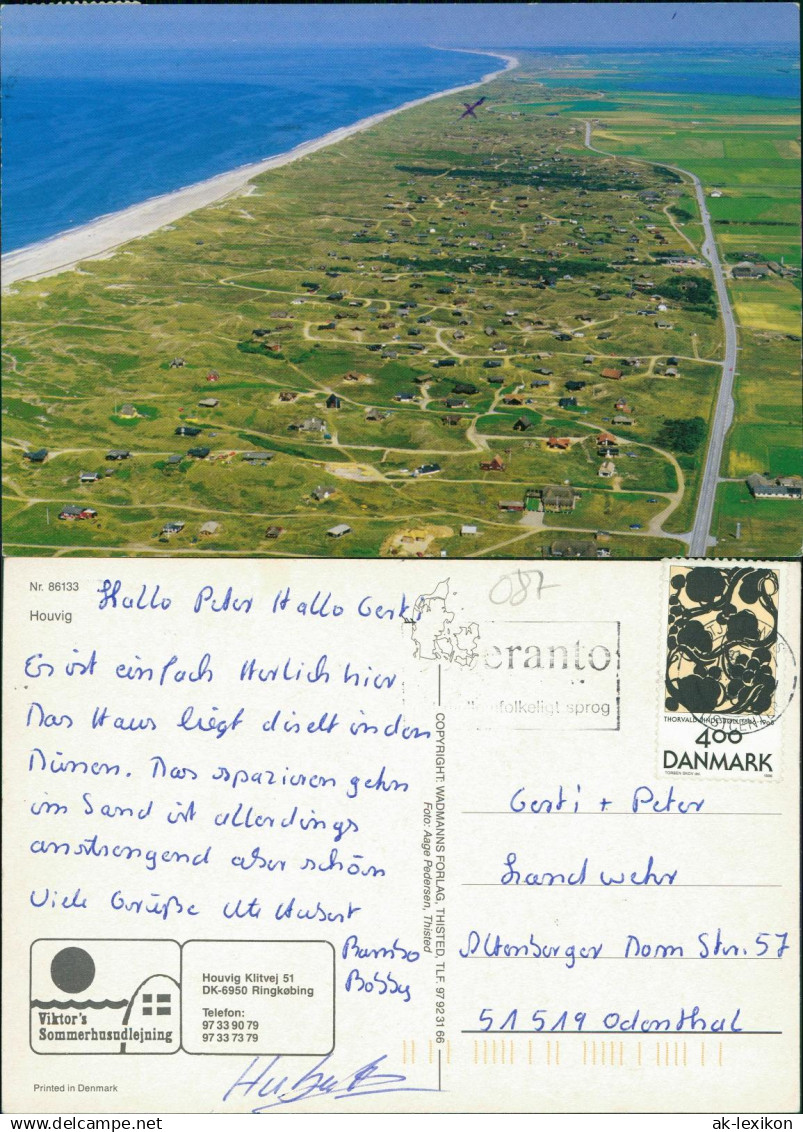 Nr. 86133
Houvig
Hallo Peter Hallo Gerti
Es ist einfach Herlich hier.
Das Haus liegt direkt in den
Dünen. Das spazieren gehn
im Sand ist allerdings
anstrengend aber schön
Viele Grüße Ute Hubert
Bambo
Bobby
087
eranto
folkeligt sprog
THORVALD BINDESBØLL 1846-1908
400
DANMARK
1996
COPYRIGHT: WADMANNS FORLAG, THISTED, TLF. 97 92 31 66
Foto: Aage Pedersen, Thisted
Gerti + Peter
Landwehr
Altenberger Dom Str. 57
51519 Odenthal
Viktor's
Sommerhusudlejning
Houvig Klitvej 51
DK-6950 Ringkøbing
Telefon:
97 33 90 79
97 33 73 79
Hubert
Printed in Denmark
ak-lexikon.com